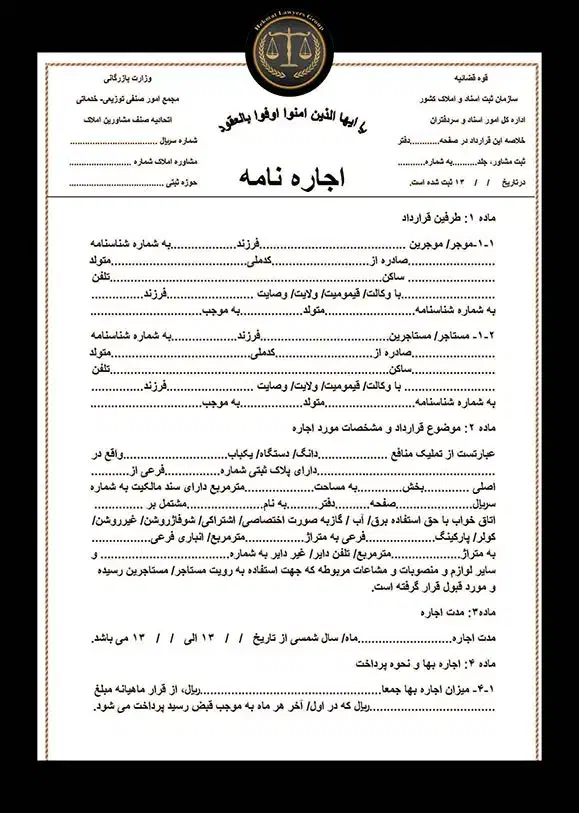 Hekmat Lawyers Group
قوه قضائیه
سازمان ثبت اسناد و املاک کشور
اداره کل امور اسناد و سردفتران
خلاصه این قرارداد در صفحه............دفتر
ثبت مشاور، جلد..........به شماره..........
درتاریخ / / ۱۳ ثبت شده است.
یا ایها الذین امنوا اوفوا بالعقود
اجاره نامه
وزارت بازرگانی
مجمع امور صنفی توزیعی- خدماتی
اتحادیه صنف مشاورین املاک
شماره سریال ..................................
مشاوره املاک شماره ..........................
حوزه ثبتی .....................................
ماده ۱: طرفین قرارداد
۱-۱-موجر/ موجرین ......................................فرزند..................به شماره شناسنامه
........................صادره از..........................کدملی......................................متولد
........................ ساکن..........................................................................تلفن
........................با وکالت/ قیمومیت/ ولایت/ وصایت ........................فرزند..............
به شماره شناسنامه........................متولد........................به موجب........................
۱-۲- مستاجر/ مستاجرین......................................فرزند..................به شماره شناسنامه
........................صادره از..........................کدملی......................................متولد
........................ساکن..........................................................................تلفن
........................ با وکالت/ قیمومیت/ ولایت/ وصایت ........................فرزند..............
به شماره شناسنامه........................متولد........................به موجب........................
ماده ۲: موضوع قرارداد و مشخصات مورد اجاره
عبارتست از تملیک منافع ....................دانگ/ دستگاه/ یکباب............................واقع در
..................................................دارای پلاک ثبتی شماره................فرعی از...........
اصلی ............بخش............به مساحت....................مترمربع دارای سند مالکیت به شماره
سریال............صفحه............دفتر.........به نام......................مشتمل بر ..............
اتاق خواب با حق استفاده برق/ آب / گازبه صورت اختصاصی/ اشتراکی/ شوفاژروشن/ غیرروشن/
کولر/ پارکینگ....................فرعی به متراژ..................مترمربع/ انباری فرعی................
به متراژ....................مترمربع/ تلفن دایر/ غیر دایر به شماره.................................... و
سایر لوازم و منصوبات و مشاعات مربوطه که جهت استفاده به رویت مستاجر/ مستاجرین رسیده
و مورد قبول قرار گرفته است.
ماده۳: مدت اجاره
مدت اجاره..........................ماه/ سال شمسی از تاریخ / / ۱۳ الی / / ۱۳ می باشد.
ماده ۴: اجاره بها و نحوه پرداخت
۴-۱- میزان اجاره بها جمعا..................................................ریال، از قرار ماهیانه مبلغ
..................................................ریال که در اول/ آخر هر ماه به موجب قبض رسید پرداخت می شود.